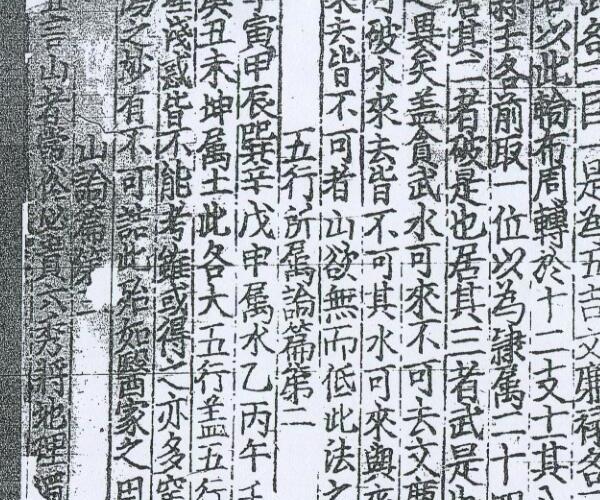 各二曰一是為五吉文廉祿各
以此輪布周轉於十二支十其
壬各前取一位以為隷属二十
居其二者破是也居其三者武是
異矣盖貪武水可來不可去文廉
可破水來去皆不可其水可來與
來去皆不可者山欲無而低此法之
五行所属論篇第二
寅甲辰巽辛戌申属水乙丙午壬
癸丑未坤属土此各大五行盖五行
茂惑皆不能考雖或得之亦多
之妙有不可誣此殆如醫家之用
山論篇第三
言山者當